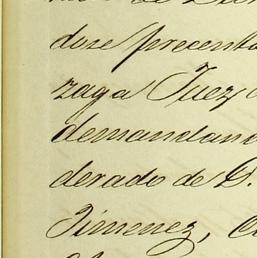 duse presenta
zaga Juez
demandan
derado de D.
Jimenez,